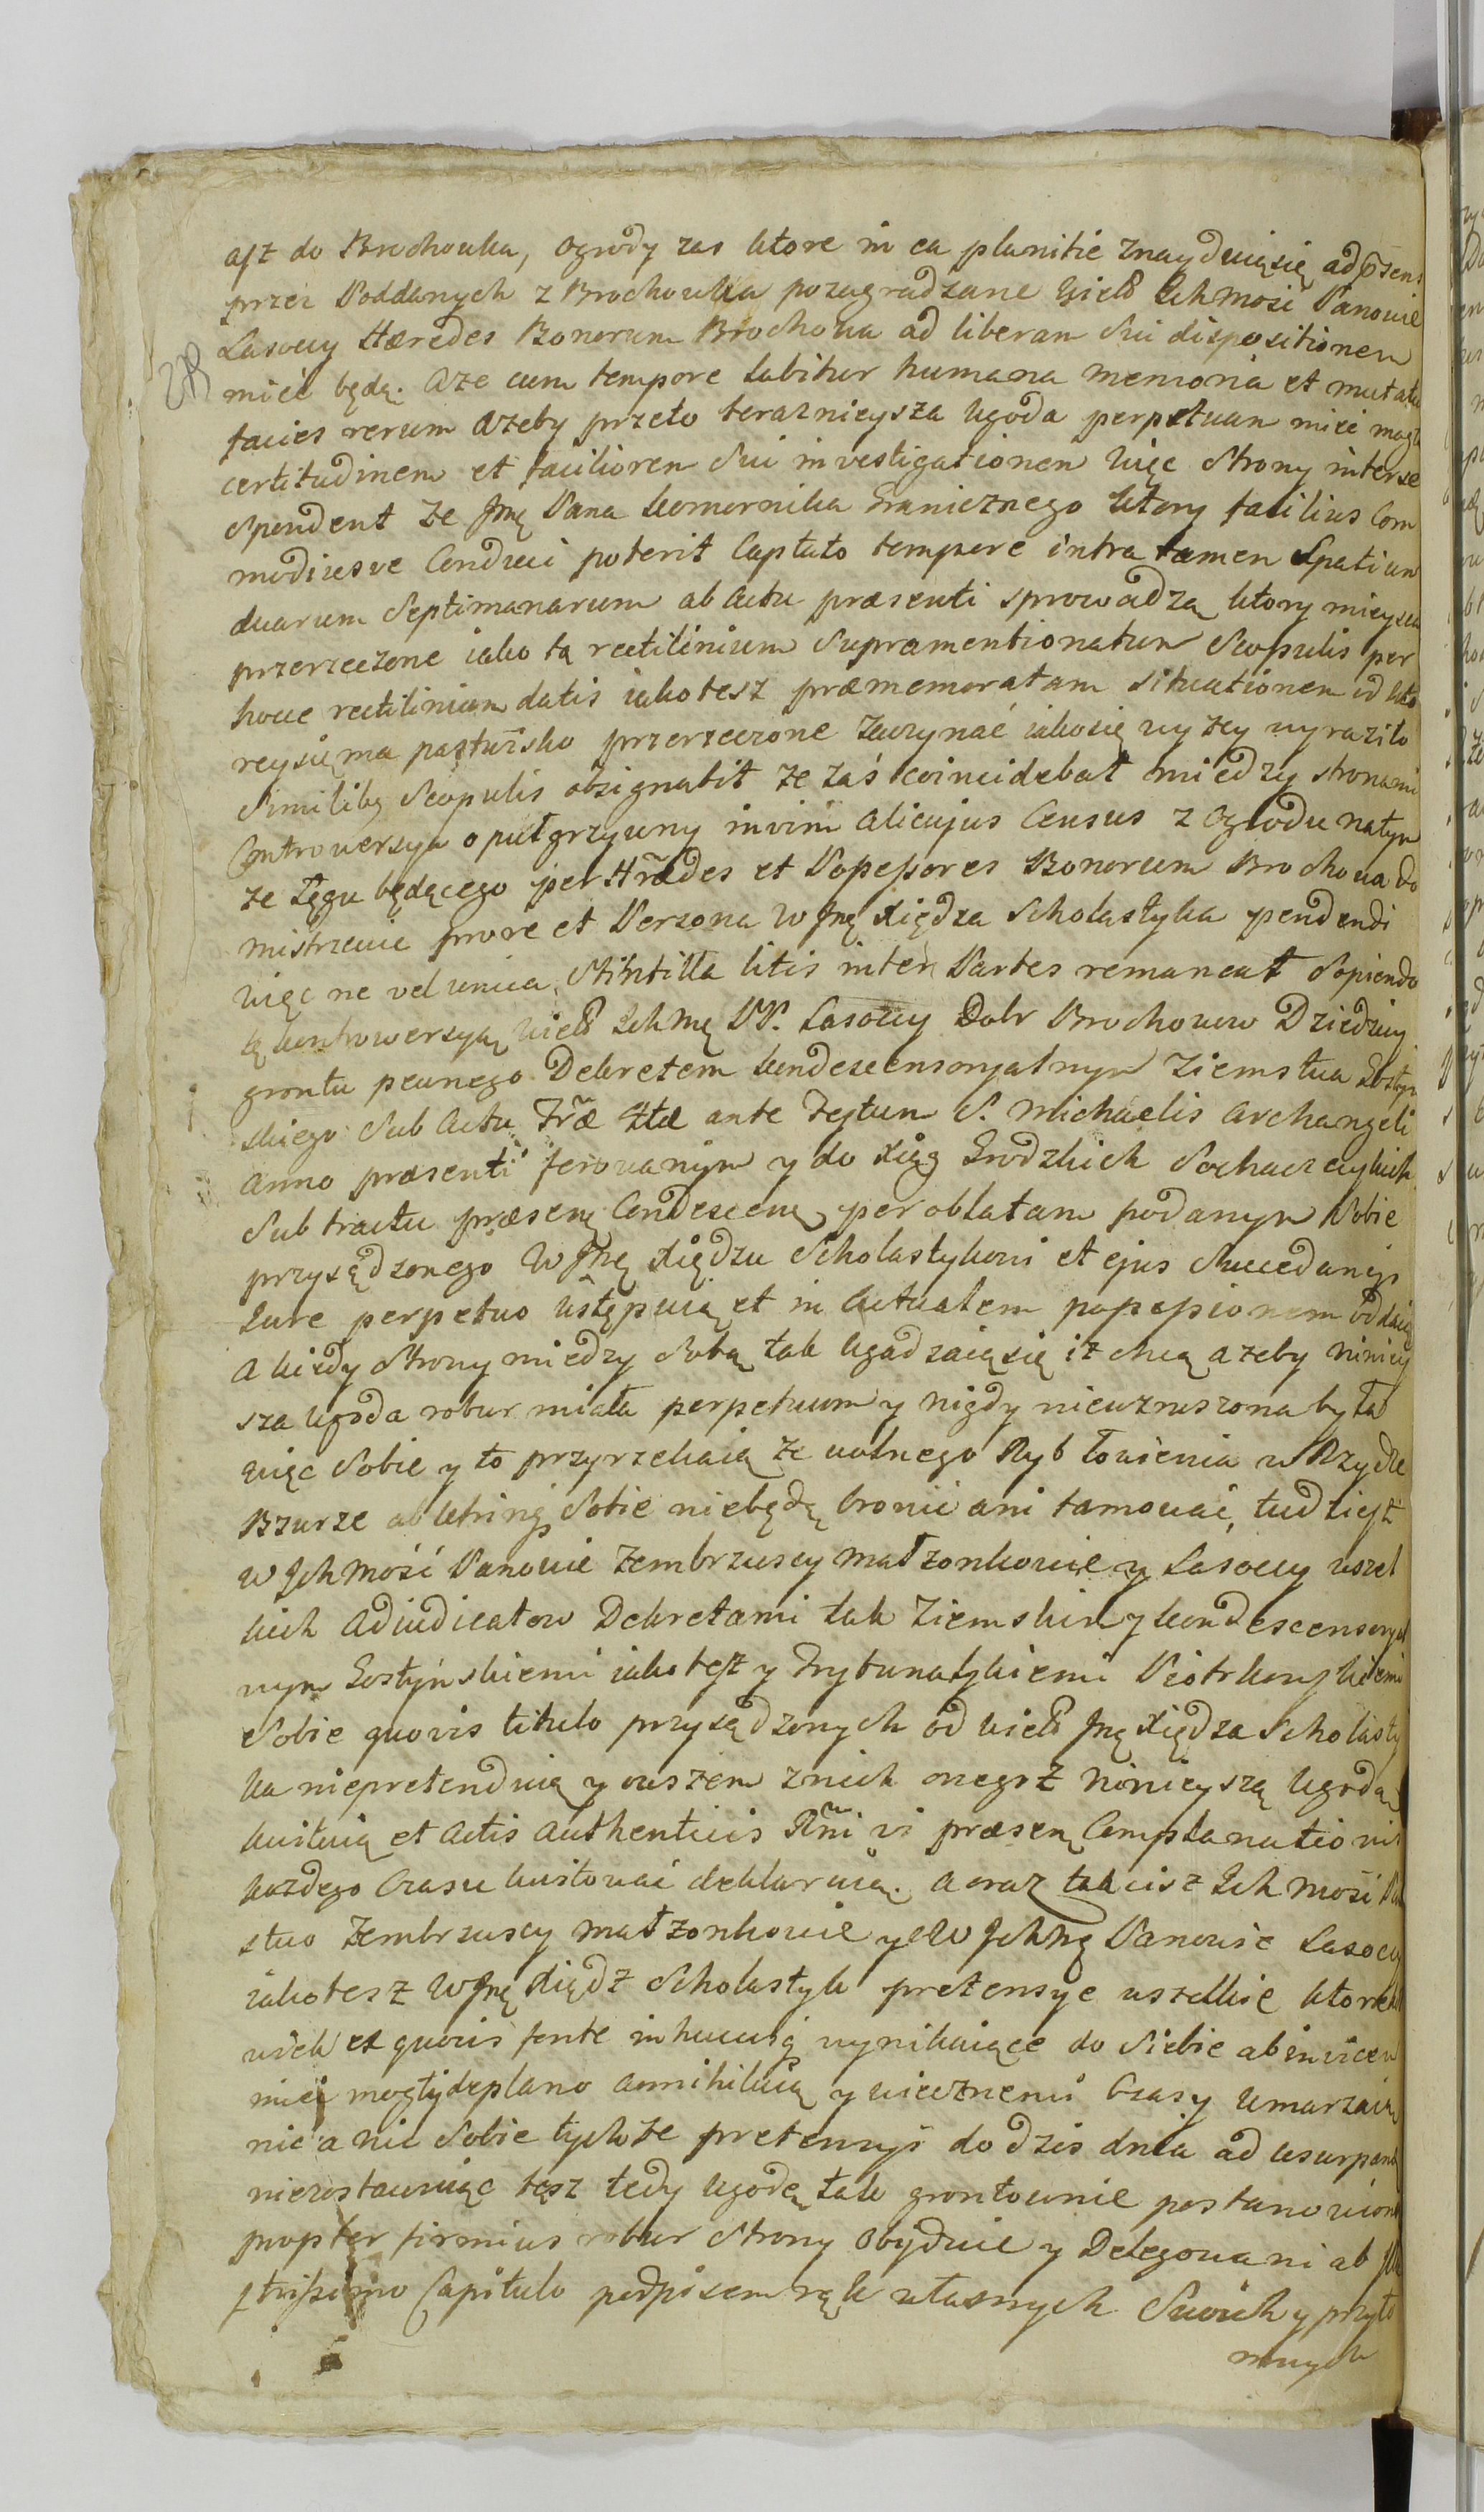 aſz do Brochowka, ogrody zas ktore in ea planitie znayduiąsię ad p̄sens
przez Poddanych z Brochowka pozagradzane Wiel Ichmość Panowie
Lasoccy Hæredes Bonorum Brochowa ad liberam Sui dispositionem
mieć będą. aże cum tempore labitur humana memoria et mutatur
facies rerum ażeby przeto teraznieysza Ugoda perpetuam mieć mogła
certitudinem et faciliorem Sui investigationem więc Strony inter se
Spondent ze Jmę Pana komornika Granicznego ktory facilius Com
modiusve Conduci poterit Captato tempore intra tamen Spatium
duarum Septimanarum ab actu præsenti sprowadzą ktory mieysca
przerzeczone iako tą rectilinium Supramentionatum Scopulis per
hocce rectilinium datis iakotesz præmemoratam situationem od kto
reysię ma pastwisko przerzeczone zaczynać iakosię wyżey wyraziło
Similibꝫ Scopulis obsignabit ze zaś coincidebat między stronami
Controwersya o pułgrzywny invim alicujus Census z ogrodu natym
ze Łęgu będącego per Hr̃ædes et Poſseſsores Bonorum Brochowa do
mistrzewic prore et Persona W Jmę Xiędza Scholastyka pendendi
więc ne vel unica Stintilla litis inter Partes remaneat Sopiendo
tę kontrowersyą Wiel Ichmę PP. Lasoccy Dobr Brochowa Dziedzicy
grontu pewnego Dekretem kondescensoryalnym Ziemstwa Gostyn
skiego Sub Actu Fr̃æ 4tæ ante Feſtum S. Michaelis Archangeli
Anno præsenti ferowanym y do Xiąg Grodzkich Sochaczewskich
Sub tractu præsenę Condescenę per oblatam podanym Sobie
przysądzonego W Jmę Xiędzu Scholastykowi et ejus Succedaneis
Jure perpetuo Ustępuią et in Actualem poſseſsionem oddaią
A kiedy Strony miedzy Sobą tak Ugadzaiąsię iz chcą ażeby niniey
sza Ugoda robur miała perpetuum y nigdy niewzruszona była
więc Sobie y to przyrzekaią ze wolnego Ryb łowienia w Rzyce
Bzurze ab utrinqꝫ Sobie niebędą bronić ani tamować, tudzieſz
W Ichmość Panowie Zembrzuscy małzonkowie y Lasoccy wszel
kich Adiudicatow Dekretami tak Ziemskim y kondescensoryal
nym Gostyńskiemi iakoteſz y Trybunalskiemi Piotrkowskiemi
Sobie quovis titulo przysądzonych od Wiel Jmę Xiędza Scholasty
ka niepretenduią y owszem znich onegoż ninieyszą Ugodą
kwituią et Actis Authenticis R̃ni vi præsenę Complanationis
kozdego Czasu kwitować deklaruią. A oraz tak cisz Ich mość Pań
stwo Zembrzuscy małzonkowie y W Ichmę Panowie Lasoccy
iakotesz W Jmę Xiądz Scholastyk pretensye wszelkie ktorekol
wiek ex quovis fonte inhucusqꝫ wynikaiące do Siebie ab invicem
mieć mogły deplano annihiluią y wiecznemi Czasy Umarzaią
nic a nic Sobie tychże pretensyi do dzis dnia ad usurpand
niezostawuiąc tęsz tedy Ugodę tak grontownie postanowioną
propter firmius robur Strony obydwie y Delegowani ab Jllu
ſtriſsimo Capitulo podpisem rąk własnych Swoich y przyto
mnych